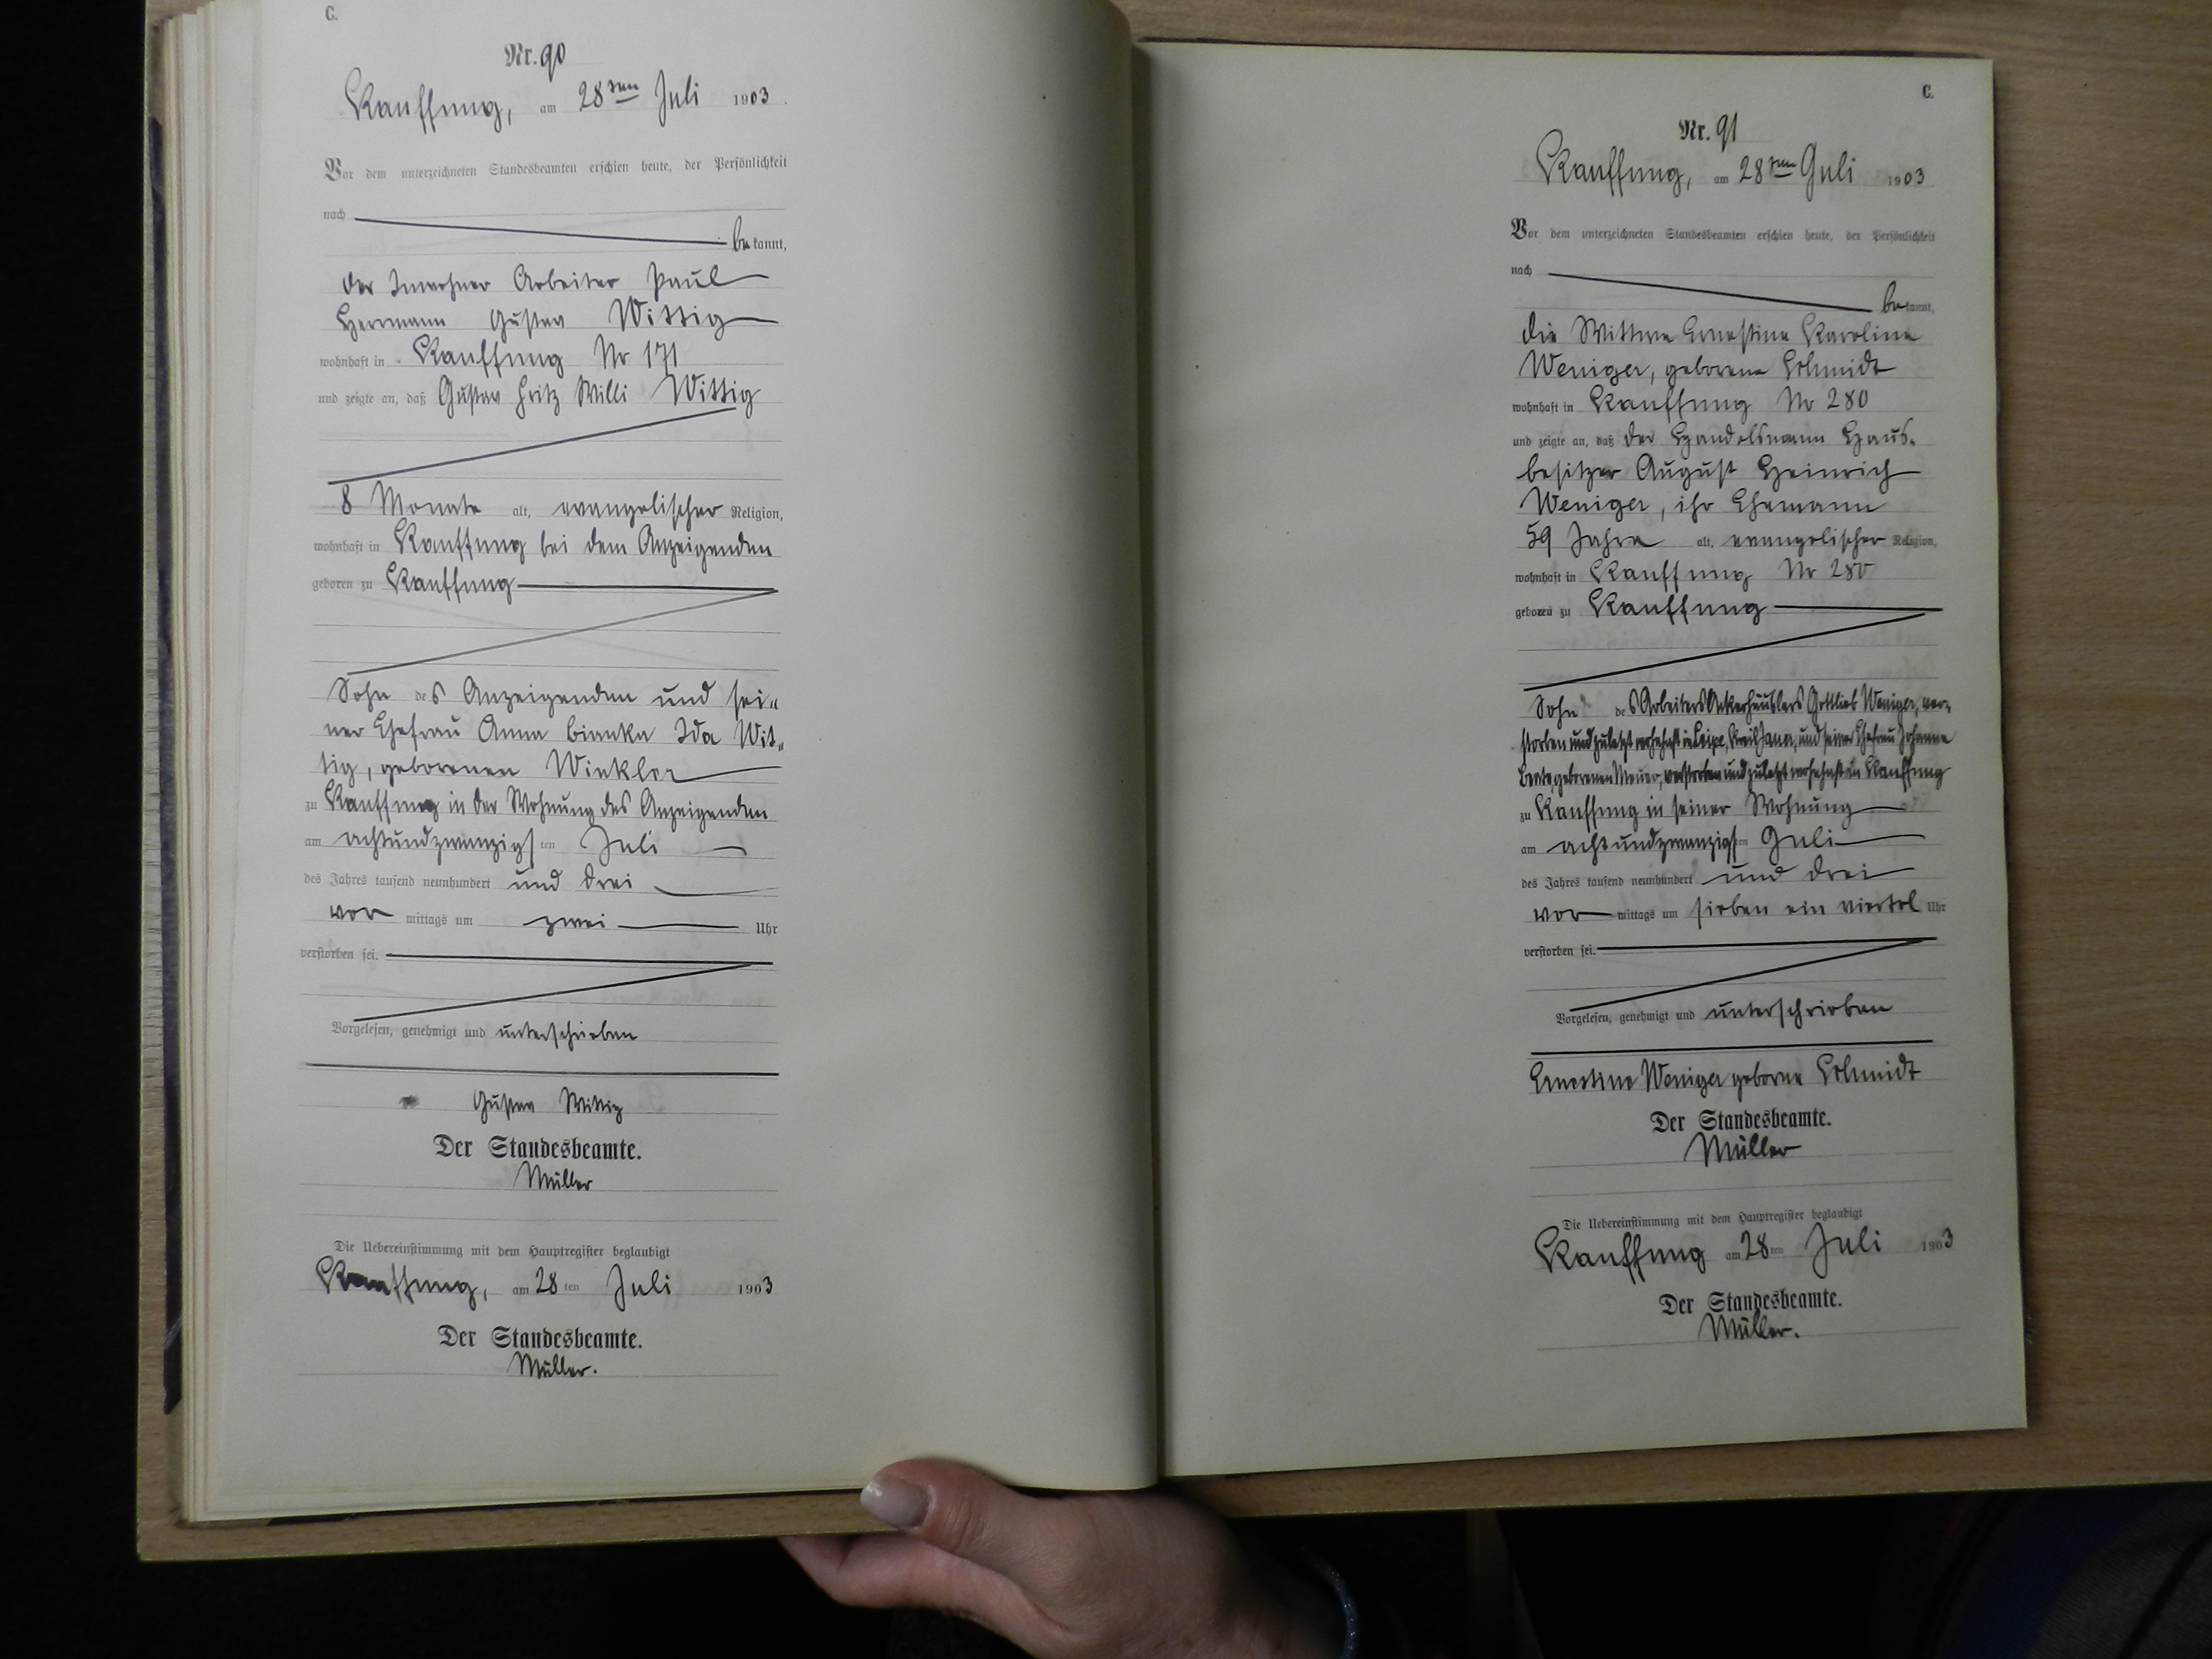 C.
Nr. 90
Kauffung, am 28ten Juli 1903.
Vor dem unterzeichneten Standesbeamten erschien heute, der Persönlichkeit
nach
be kannt,
der Inwohner Arbeiter Paul
Herrmann Gustav Wittig
wohnhaft in Kauffung Nr 171
und zeigte an, daß Gustav Fritz Willi Wittig
8 Monate alt, evangelischer Religion,
wohnhaft in Kauffung bei dem Anzeigenden
geboren zu Kauffung
Sohn des Anzeigenden und sei„
ner Ehefrau Anna Bianka Ida Wit„
tig, geborenen Winkler
zu Kauffung in der Wohnung des Anzeigenden
am achtundzwanzigsten Juli
des Jahres tausend neunhundert und drei
vor mittags um zwei Uhr
verstorben sei.
Vorgelesen, genehmigt und unterschrieben
Gustav Wittig
Der Standesbeamte.
Müller
Die Uebereinstimmung mit dem Hauptregister beglaubigt
Kauffung, am 28 ten Juli 1903
Der Standesbeamte.
Müller.
C.
Nr. 91
Kauffung, am 28ten Juli 1903.
Vor dem unterzeichneten Standesbeamten erschien heute, der Persönlichkeit
nach
be kannt,
die Wittwe Ernestine Karoline
Weniger, geborene Schmidt
wohnhaft in Kauffung Nr 280
und zeigte an, daß der Handelsmann Haus-
besitzer August Heinrich
Weniger, ihr Ehemann
59 Jahre alt, evangelischer Religion,
wohnhaft in Kauffung Nr 280
geboren zu Kauffung
Sohn des Arbeiters Ackerhäuslers Gottlieb Weniger, ver-
storben und zuletzt wohnhaft in Leipe, Kreis Jauer, und seiner Ehefrau Johanne
Beate, geborenen, verstorben und zuletzt wohnhaft in Kauffung
zu Kauffung in seiner Wohnung
am achtundzwanzigsten Juli
des Jahres tausend neunhundert und drei
vor mittags um sieben ein viertel Uhr
verstorben sei.
Vorgelesen, genehmigt und unterschrieben
Ernestine Weniger geborne Schmidt
Der Standesbeamte.
Müller
Die Uebereinstimmung mit dem Hauptregister beglaubigt
Kauffung am 28 ten Juli 1903
Der Standesbeamte.
Müller.